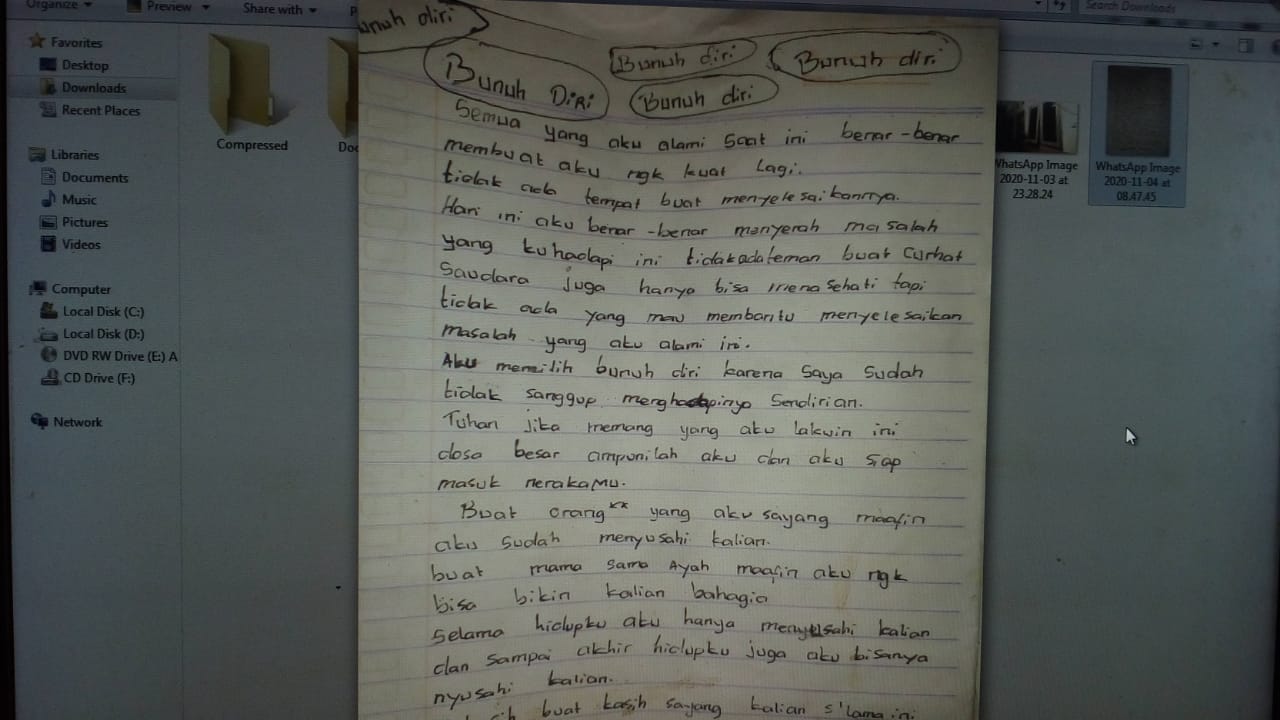 Organize
Preview
Share with
Search Downloads
Favorites
Desktop
Downloads
Recent Places
Libraries
Documents
Music
Pictures
Videos
Computer
Local Disk (C:)
Local Disk (D:)
DVD RW Drive (E:) A
CD Drive (F:)
Network
Compressed
WhatsApp Image
2020-11-03 at
23.28.24
WhatsApp Image
2020-11-04 at
08.47.45
diri
Bunuh diri
Bunuh diri
Bunuh Diri
Bunuh diri
Semua yang aku alami saat ini benar-benar
membuat aku ngk kuat lagi.
tidak ada tempat buat menyelesaikannya.
Hari ini aku benar-benar menyerah masalah
yang kuhadapi ini tidak ada teman buat curhat
saudara juga hanya bisa menasehati tapi
tidak ada yang mau membantu menyelesaikan
masalah yang aku alami ini.
Aku memilih bunuh diri karena saya sudah
tidak sanggup menghadapinya sendirian.
Tuhan jika memang yang aku lakuin ini
dosa besar ampunilah aku dan aku siap
masuk nerakaMu.
Buat orang** yang aku sayang maafin
aku sudah menyusahi kalian.
buat mama sama Ayah maafin aku ngk
bisa bikin kalian bahagia
Selama hidupku aku hanya menyusahi kalian
dan sampai akhir hidupku juga aku bisanya
nyusahi kalian.
buat kasih sayang kalian s'lama ini